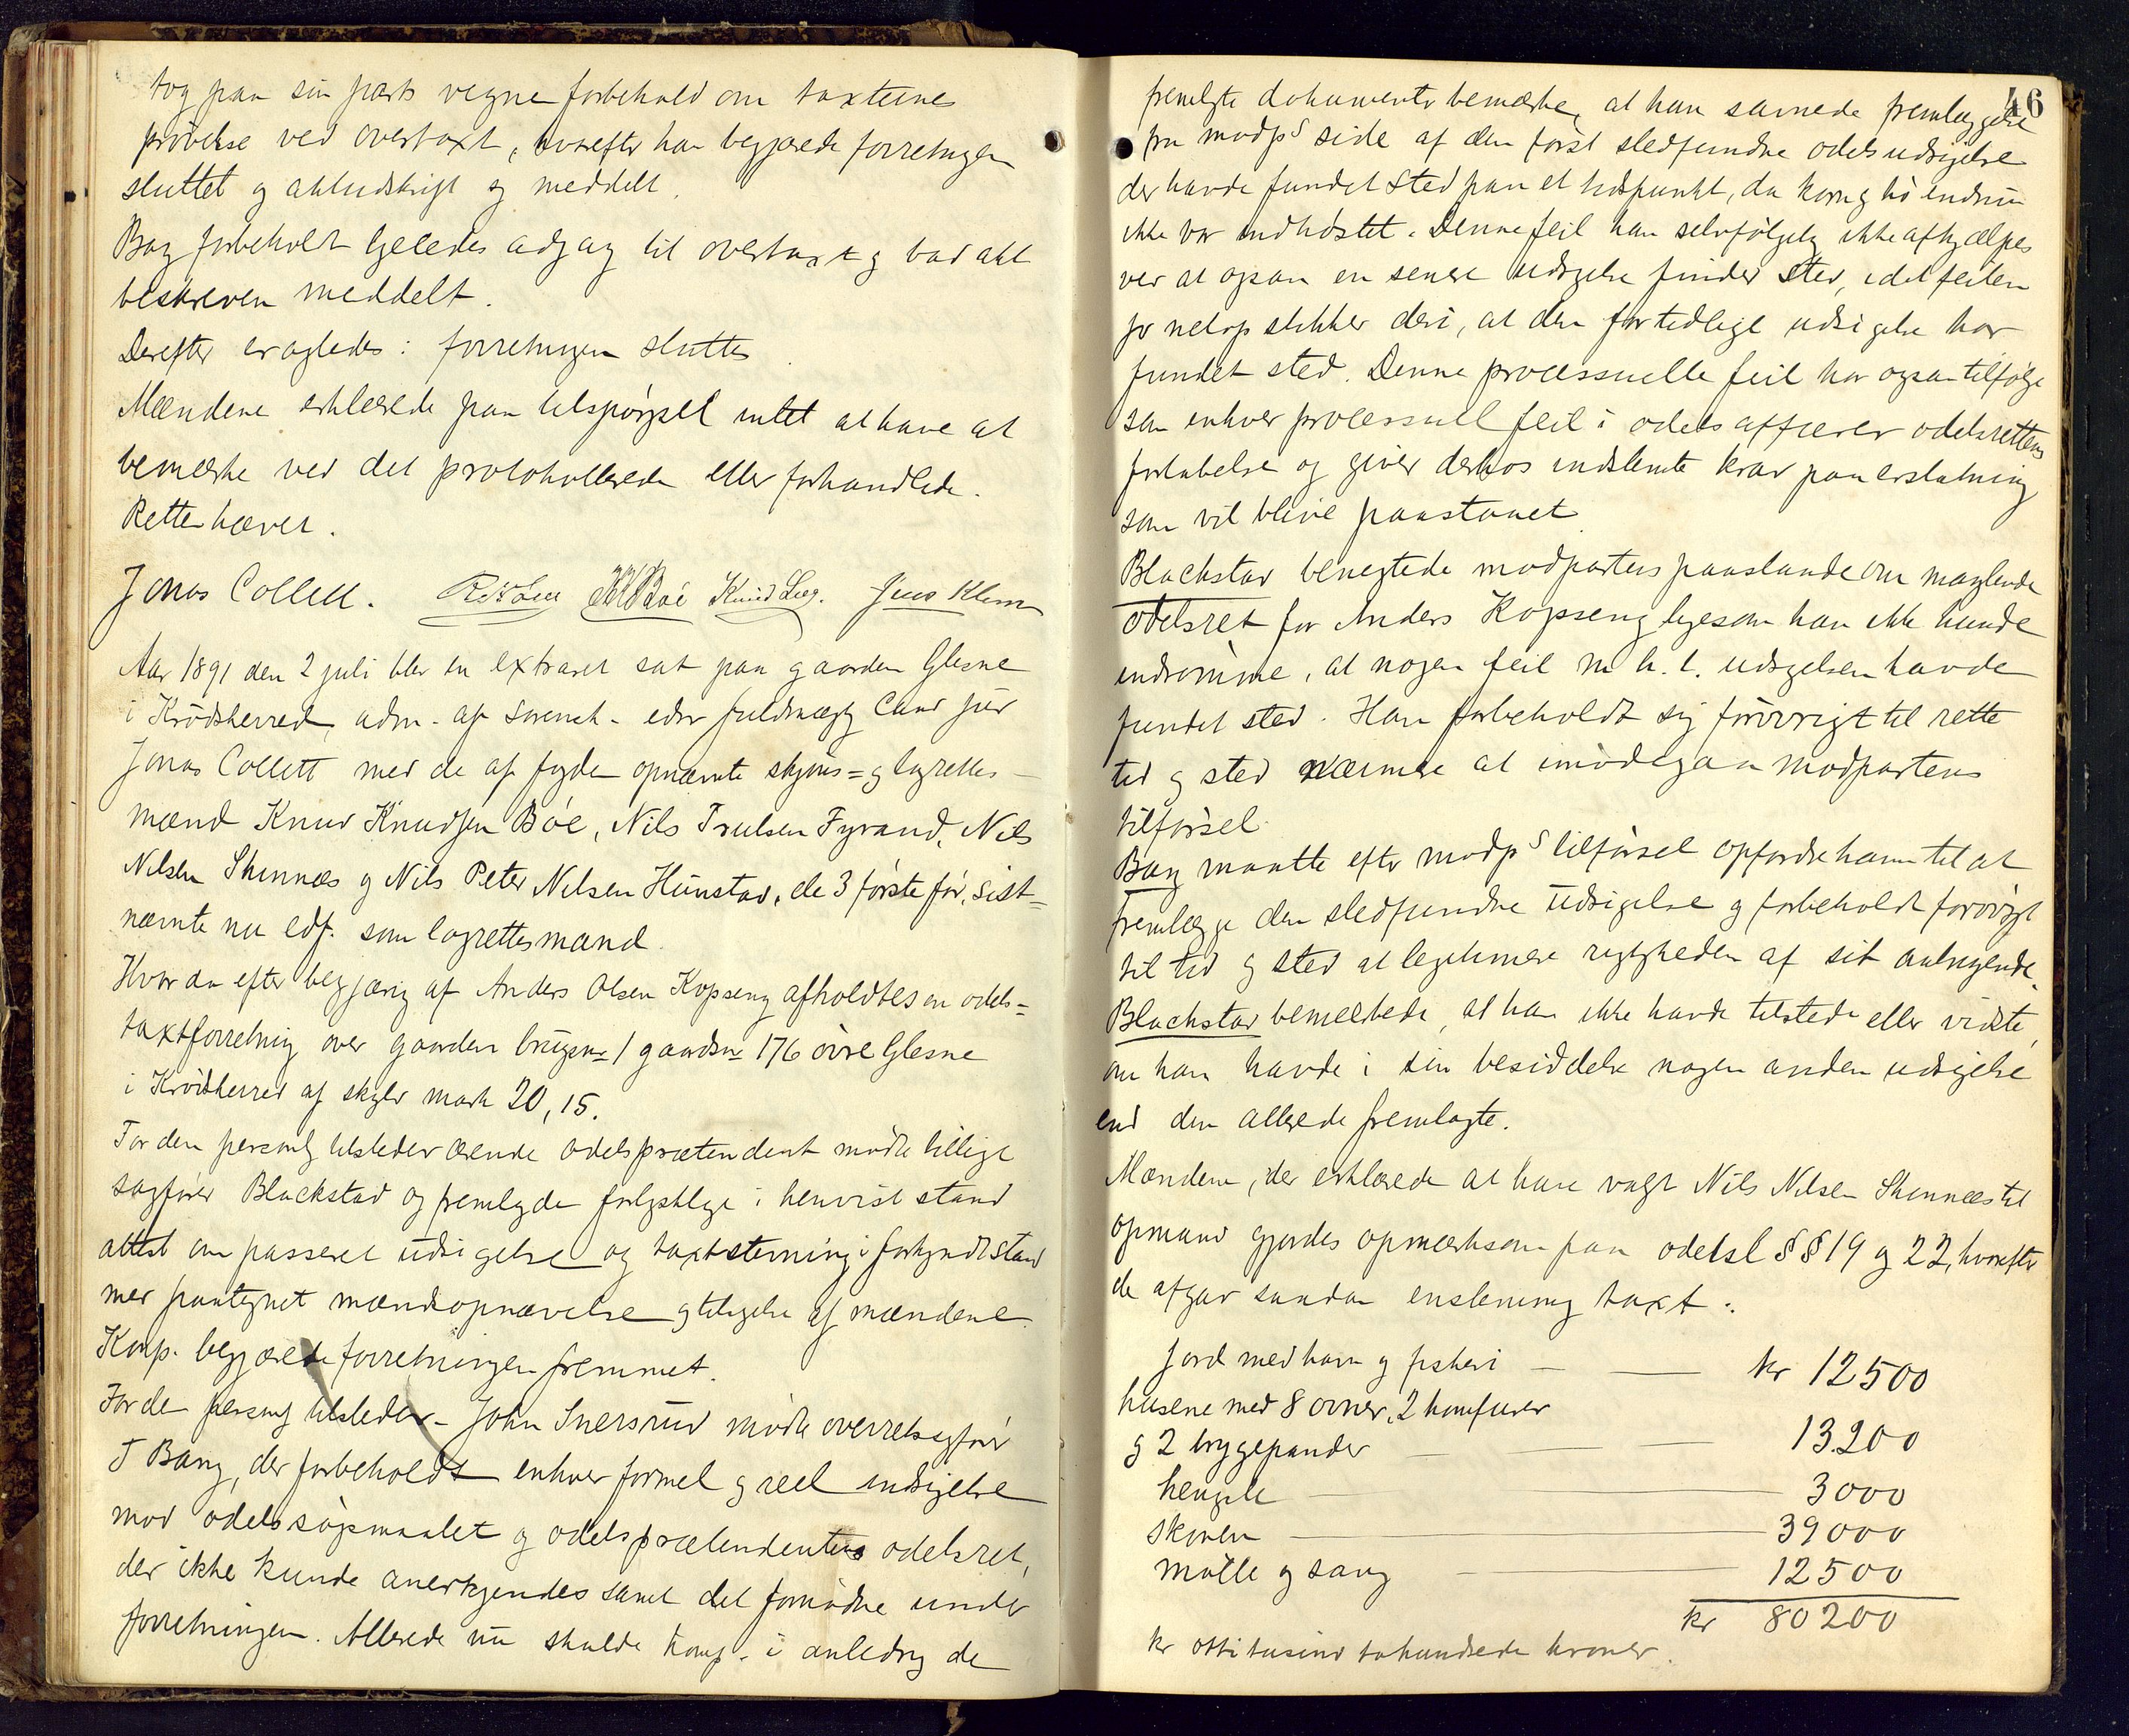 tog paa sin parts vegne forbehold om taxternes
prövelse ved overtaxt, hvorefter han begjærede forretningen
sluttet og aktudskrift sg meddelt.
Bang forbeholdt ligeledes adgang til overtaxt og bad akt
beskreven meddelt.
Derefter eragtedes: forretningen sluttes
Mændene erklærede paa tilspörgsel intet at have at
bemærke ved det protokollerede eller forhandlede.
Retten hævet.
Jonas Collett. KKBöe Knud Jens Klem
Aar 1891 den 2 juli blev en extraret sat paa gaarden Glesne
i Krödsherred, adm. af sorensk. edsv fuldmægtig Cand jur
Jonas Collett med de af fogden opnævnte skjöns= og lagrettes-
mænd Knud Knudsen Böe, Nils Trulsen Fyrand, Nils
Nilsen Skinnes og Nils Peter Nilsen Hunstad, de 3 försteför, sist=
nævnte nu edf. som lagrettesmand.
Hvor da efter begjæring af Anders Olsen Kopseng afholdtes en odels=
taxtforretning over gaarden brugsnr 1 gaardsnr 176 övre Glesne
i Krödsherred af skyld mark 20,15.
For den personlig tilstedeværende odelsprætendent mödte tillige
sagförer Blackstad og fremlagde fölgeseddel i henvist stand
attest om passeret udsigelse og taxtstevning i forkyndt stand
med paategnet mændsopnævelse og tilsigelse af mændene
Komp. begjærede forretningen fremmet.
For den personlig tilstedev. John Snersrud mödte overretssagförer
J Bang, der forbeholdt enhver formel og reel indsigelse
mod odelssögsmaalet og odelsprætendentens odelsret,
der ikke kunde anerkjendes samt det fornödne under
forretningen. Allerede nu skulde komp. i anledng de
46
fremlagte dokumenter bemærke, at han savnede fremlæggelse
fra modps side af den först stedfundne odelsudsigelse
der havde fundet sted paa et tidspunkt, da korn og hö endnu
ikke var indhöstet. Denne feil kan selvfölgelig ikke afhjælpes
ved at ogsaa en senere udsigelse finder sted, idet feilen
jo netop stikker deri, at den for tidlige udsigelse har
fundet sted. Denne processuelle feil har ogsaa tilfölge
som enhver processuel feil i odelsaffærer odelsrettens
fortabelse og giver derhos indstevnte krav paa erstatning
som vil blive paastaaet
Blackstad benegtede modpartens paastande om manglende
odelsret for Anders Kopseng ligesom han ikke kunde
indrömme, at nogen feil m. h. t. udsigelsen havde
fundet sted. Han forbeholdt sig forövrigt til rette
tid og sted nærmere at imödegaa modpartens
tilförsel.
Bang maatte efter modps tilförsel opfordre ham til at
fremlægge den stedfundne udsigelse og forbeholdt forövrigt
til tid og sted at legitimere rigtigheden af sit anbringende.
Blackstad bemerkede, at han ikke havde tilstede eller vidste,
om han havde i sin besiddelse nogen anden udsigelse
end den allerede fremlagte.
Mændene, der erklærede at have valgt Nils Nilsen Skinnes til
opmand gjordes opmærksom paa odelsl §§ 19 og 22, hvorefter
de afgav saadan enstemmig taxt:
Jord med havn og fiskeri — — kr 12500
husene med 8 ovner, 2 komfurer
og 2 bryggepander — — 13200
hengsle — 3000
skoven — 39000
mölle og saug — 12500
kr 80200
kr ottitusind tohundrede kroner.